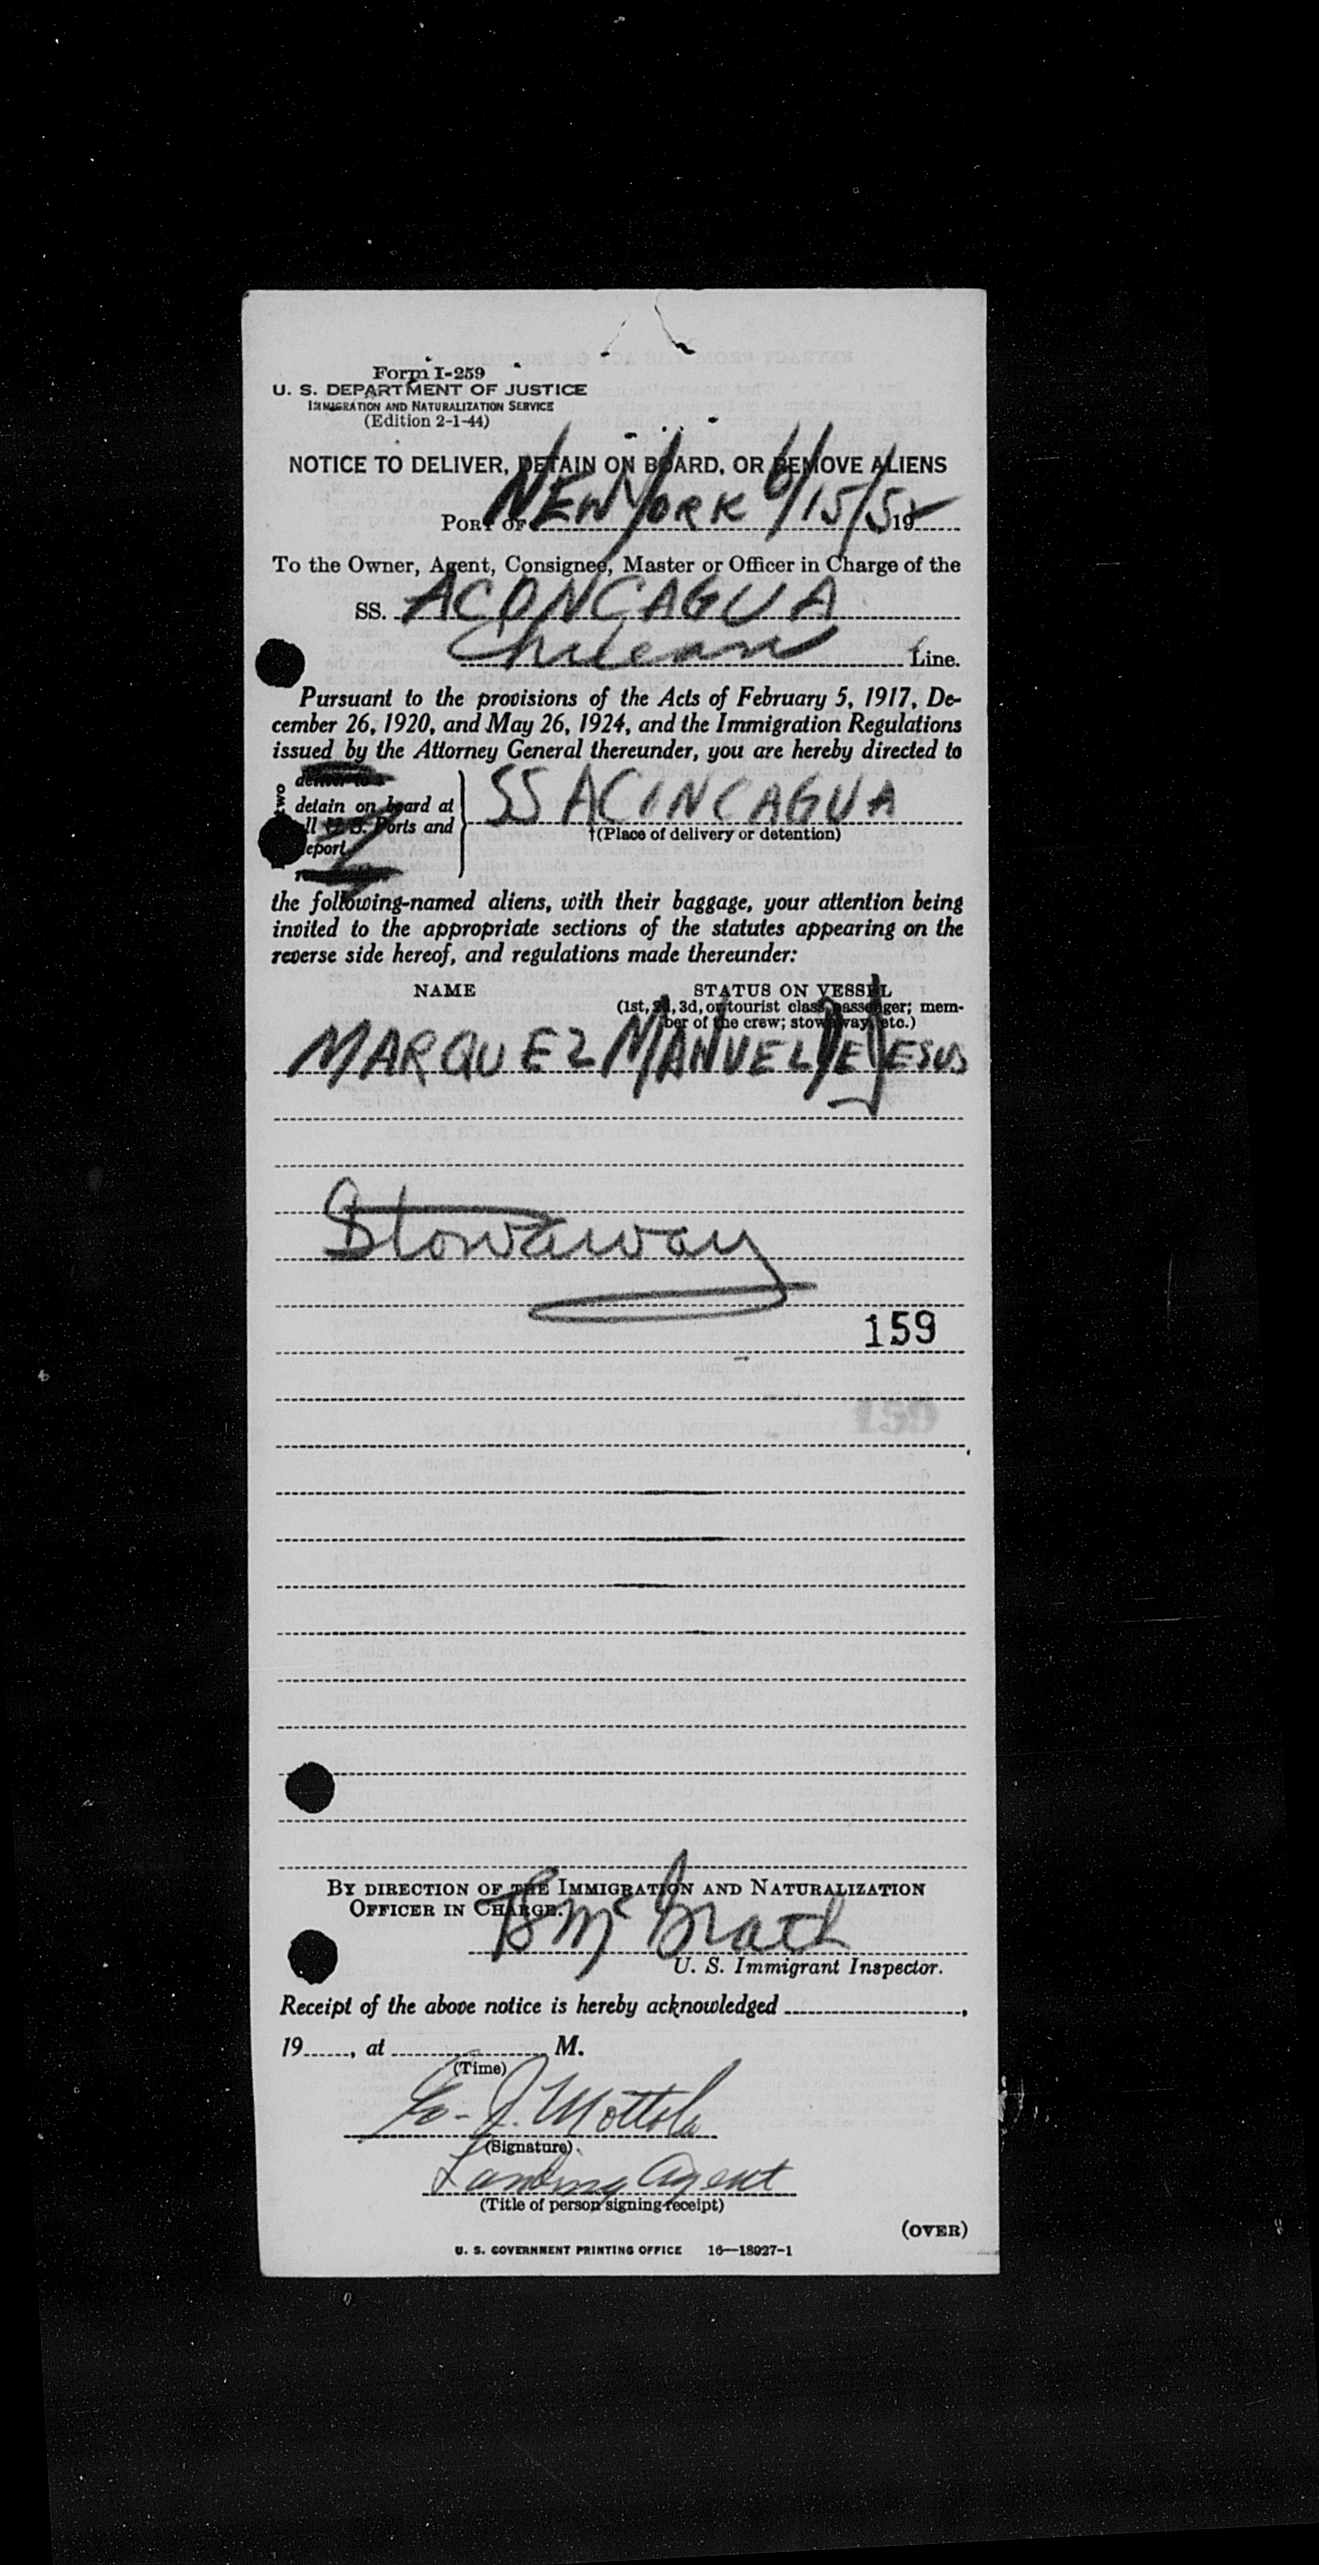 Form I-259
U. S. DEPARTMENT OF JUSTICE
IMMIGRATION AND NATURALIZATION SERVICE
(Edition 2-1-44)
NOTICE TO DELIVER, DETAIN ON BOARD, OR REMOVE ALIENS
PORT OF NEW YORK 6/15/5 19
To the Owner, Agent, Consignee, Master or Officer in Charge of the
SS. ACONCAGUA
Chilean Line.
Pursuant to the provisions of the Acts of February 5, 1917, De-
cember 26, 1920, and May 26, 1924, and the Immigration Regulations
issued by the Attorney General thereunder, you are hereby directed to
two
deliver to
detain on board at
ll U. S. Ports and
eport
SS ACINCAGUA
†(Place of delivery or detention)
the following-named aliens, with their baggage, your attention being
invited to the appropriate sections of the statutes appearing on the
reverse side hereof, and regulations made thereunder:
NAME STATUS ON VESSEL
(1st, 2d, 3d, or tourist class passenger; mem-
ber of the crew; stowaway, etc.)
MARQUEZ MANUEL DE JESUS
Stowaway
159
BY DIRECTION OF THE IMMIGRATION AND NATURALIZATION
OFFICER IN CHARGE.
B McGrath
U. S. Immigrant Inspector.
Receipt of the above notice is hereby acknowledged ,
19 , at M.
(Time)
J. Mottola
(Signature)
Landing Agent
(Title of person signing receipt)
(OVER)
U. S. GOVERNMENT PRINTING OFFICE 16—18027-1